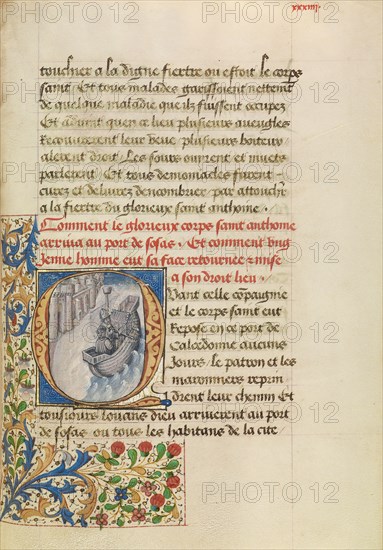 xxxiiij.
touchier a la digne fiertre ou estoit le corps
saint / Et tous malades garissoient nettement
de quelque maladie que ilz fuissent occupez
Et aduint quen ce lieu plusieurs aueugles
Recouurerent leur veue / plusieurs boiteux
alerent droit / Les sours ouirent et muets
parlerent / Et tous demoniacles furent
curez et deliurez dencombrier par attouchier
a la fiertre du glorieux saint anthoine .
Comment le glorieux corps saint anthoine
arriua au port de sosas . Et comment vng
Jenne homme eut sa face retournee et mise
a son droit lieu .
Quant celle compaignie
et le corps saint eut
Repose en ce port de
Calcedonie aucuns
Jours / le patron et les
maronniers reprin
drent leur chemin Et
tousiours looans dieu arriuerent au port
de sosas ou tous les habitans de la cite
PHOTO 12
PHOTO 12
PHOTO 12
PHOTO 12
PHOTO 12